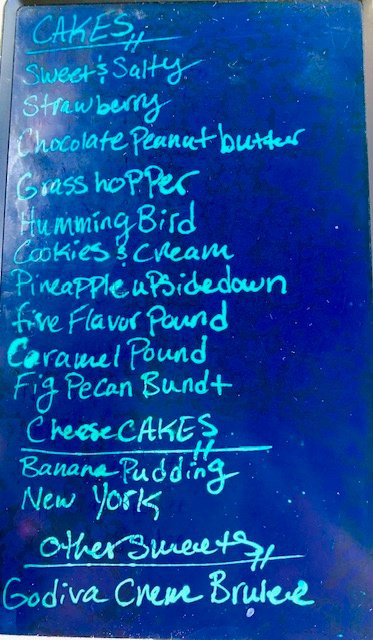 CAKES
Sweet & Salty
Strawberry
Chocolate Peanut butter
Grasshopper
Humming Bird
Cookies & Cream
Pineapple upsidedown
five Flavor Pound
Caramel Pound
Fig Pecan Bundt
Cheese CAKES
Banana Pudding
New York
other sweets
Godiva Creme Brulee